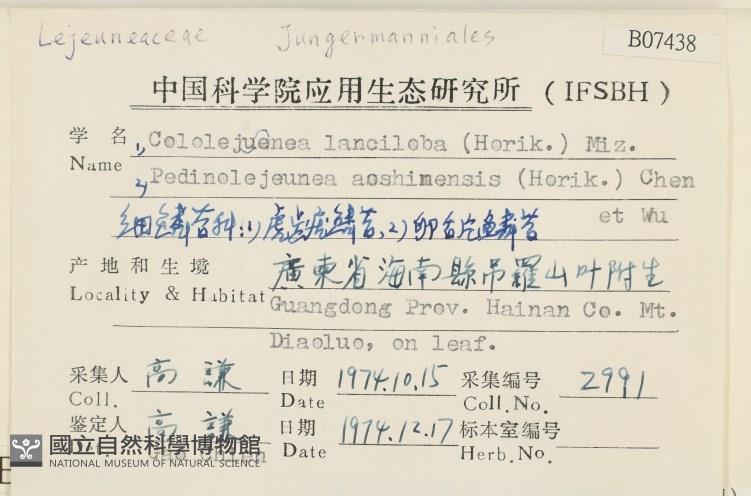 Lejeuneaceae Jungermanniales B07438
中国科学院应用生态研究所 (IFSBH)
学名 1, Cololejeunea lanciloba (Horik.) Miz.
Name 2, Pedinolejeunea aoshimensis (Horik.) Chen
et Wu
细鳞苔科:1) 鳞苔、2) 卵 鳞苔
产地和生境 廣東省海南縣吊羅山叶附生
Locality & Habitat Guangdong Prov. Hainan Co. Mt.
Diaoluo, on leaf.
采集人 高謙 日期 1974.10.15 采集编号 2991
Coll. Date Coll.No.
鉴定人 高謙 日期 1974.12.17 标本室编号
Gao Chien Date Herb.No.
國立自然科學博物館
NATIONAL MUSEUM OF NATURAL SCIENCE